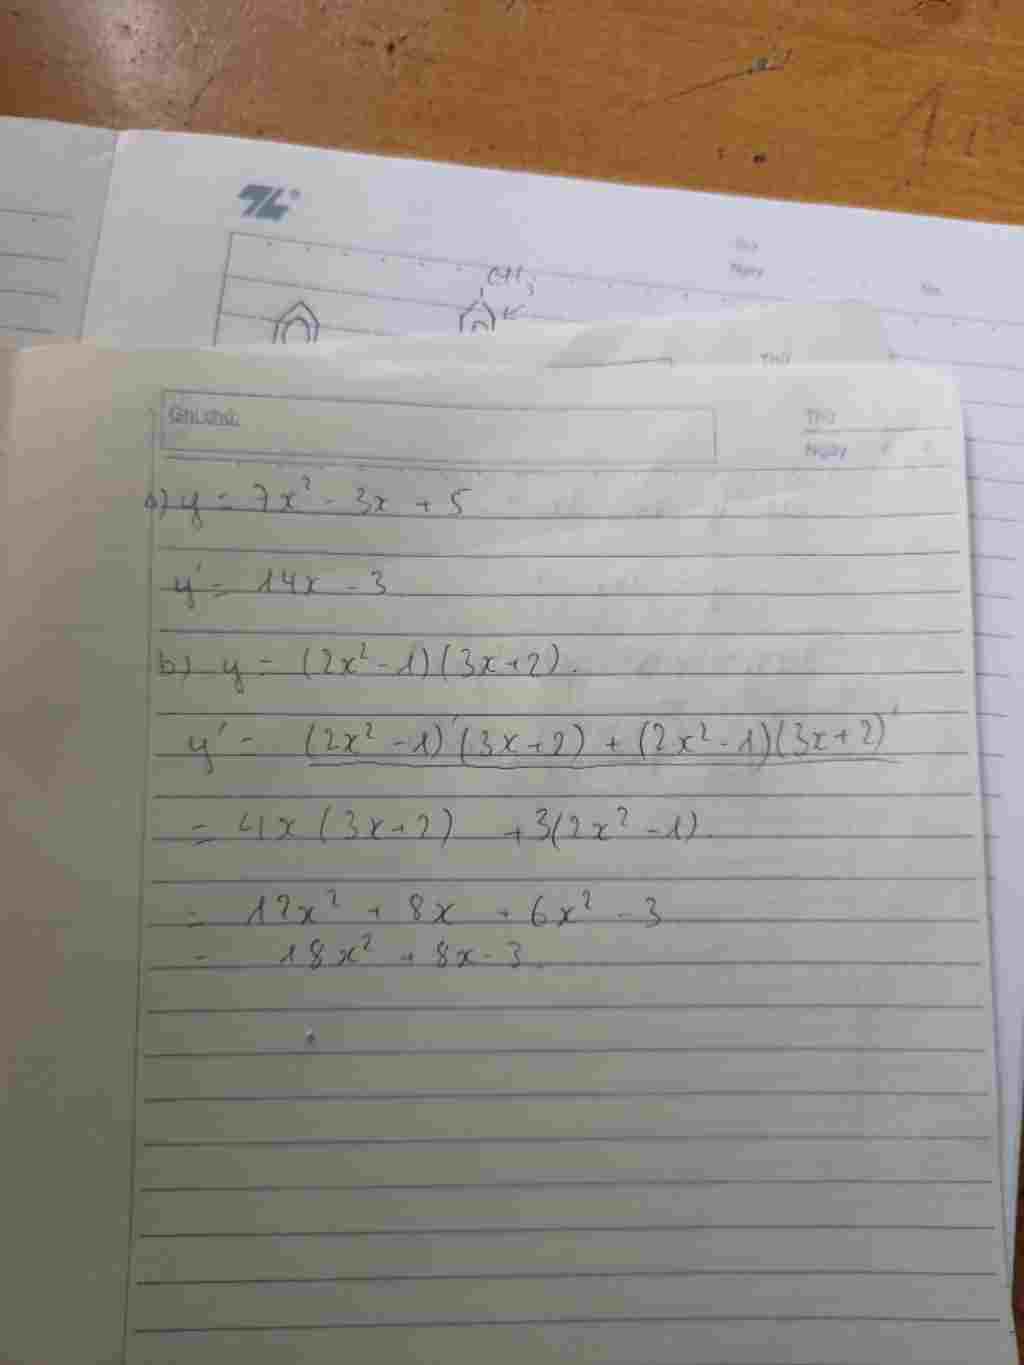 CH3
THỨ
Ngày
No.
THỨ
THỨ
Ngày
a) y = 7x² - 3x + 5
y' = 14x - 3
b) y = (2x² - 1)(3x+2).
y' = (2x² - 1)'(3x+2) + (2x² - 1)(3x+2)'
= 4x (3x+2) + 3(2x² - 1).
= 12x² + 8x + 6x² - 3
= 18x² + 8x - 3.